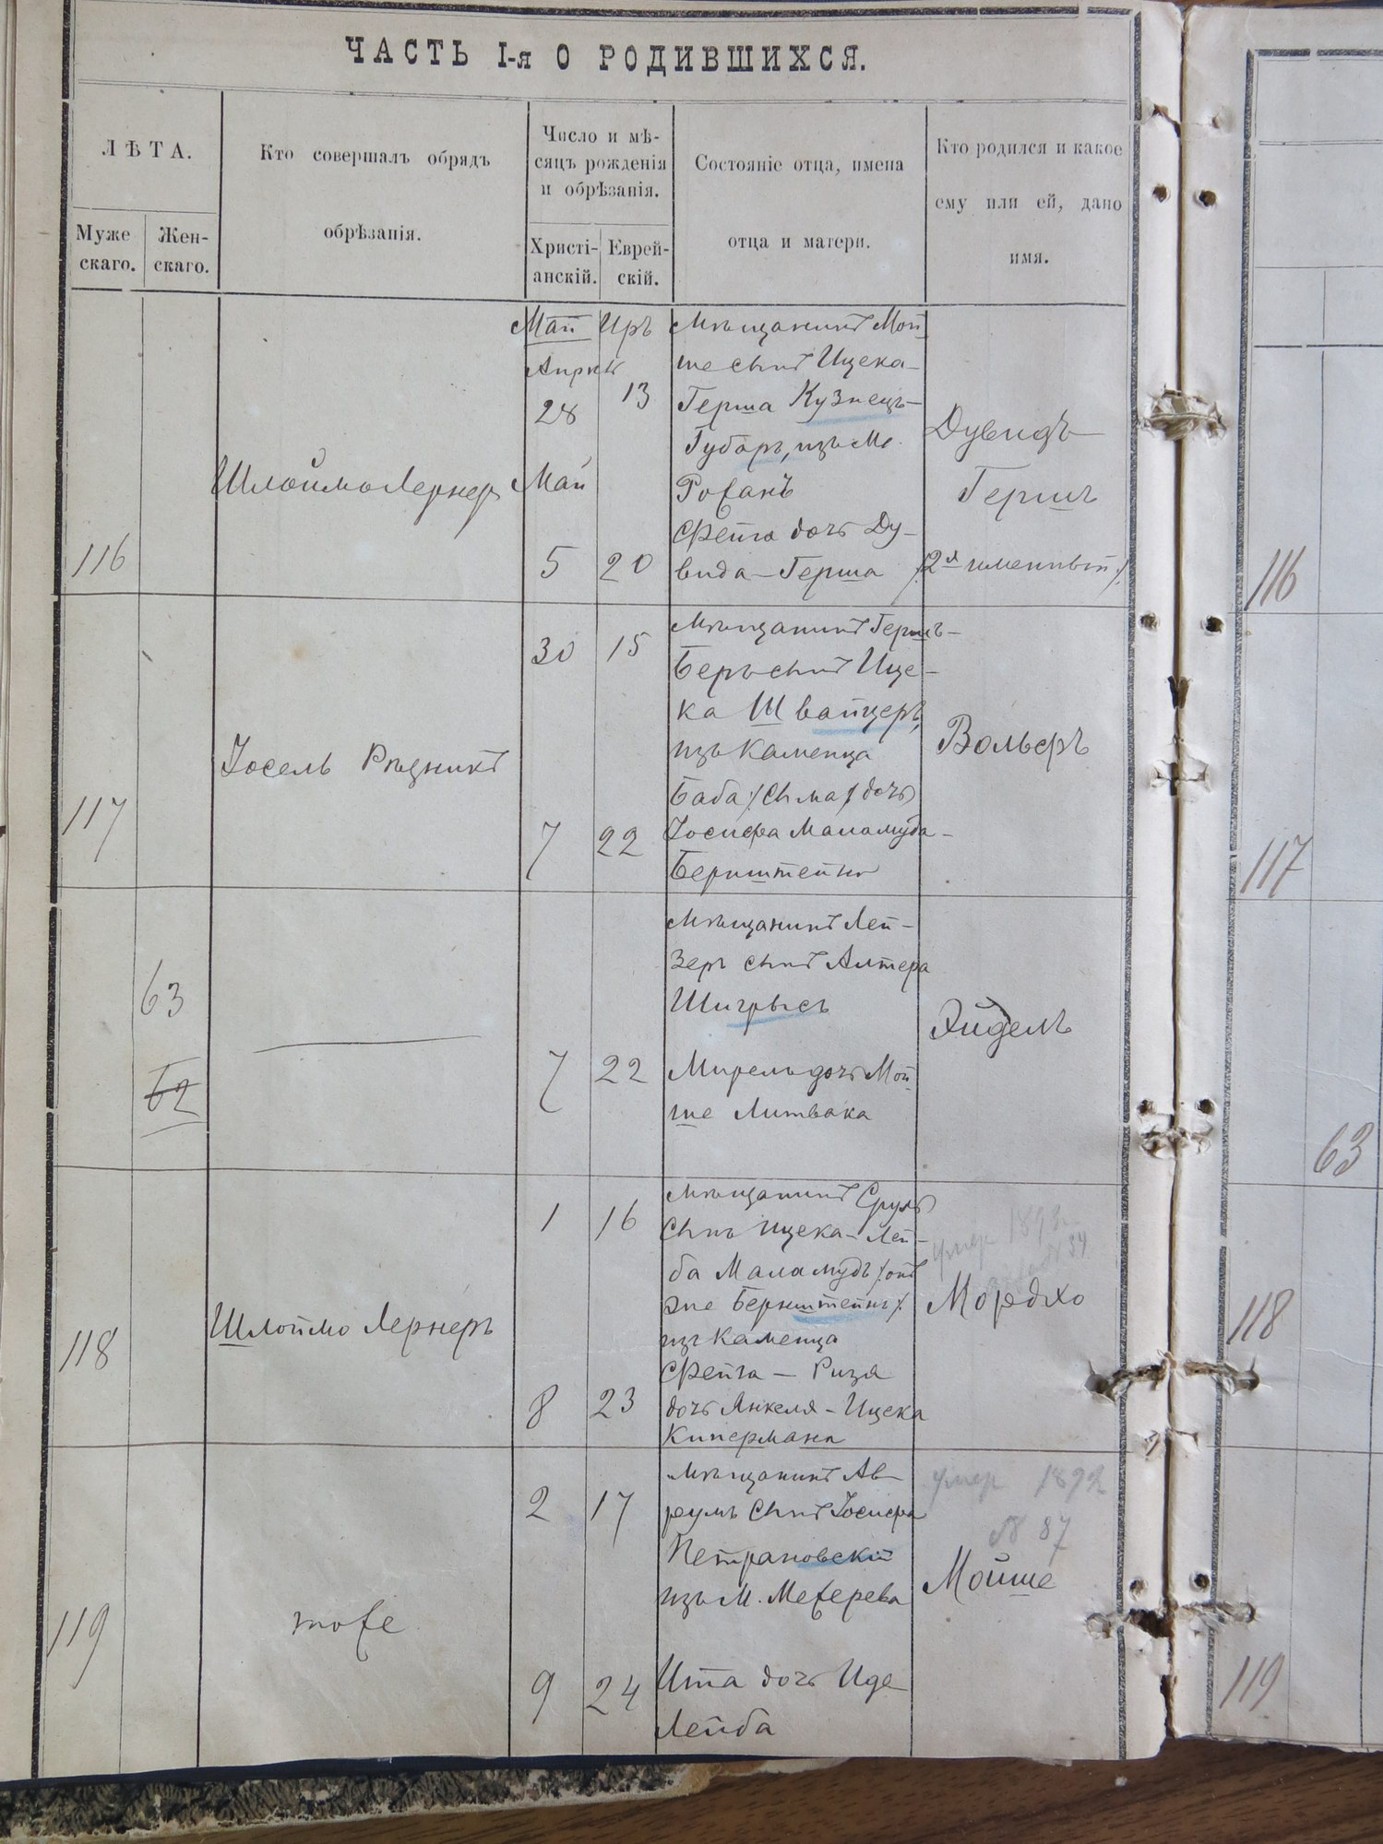 ЧАСТЬ I-я О РОДИВШИХСЯ.
ЛѢТА.
Муже
скаго.
Жен-
скаго.
Кто совершалъ обрядъ
обрѣзанія.
Число и мѣ-
сяцъ рожденія
и обрѣзанія.
Христі-
анскій.
Еврей-
скій.
Состояніе отца, имена
отца и матери.
Кто родился и какое
ему или ей, дано
имя.
116
Шлоймо Лернеръ
Май
Апрель
28
Май
5
Иръ
13
20
Мѣщанинъ Мой
ше сынъ Ицека-
Герша Кузнецъ-
Губаръ, изъ М.
Рожанъ
Фейга дочь Ду-
вида-Герша
Дувидъ
Гершъ
/2й именный/
116
117
Іосель Рѣзникъ
30
7
15
22
Мѣщанинъ Гершъ-
Беръ сынъ Ице-
ка Швайцеръ,
изъ Каменца
Баба /Сыма/ дочь
Іосифа Маламуда-
Бернштейна
Вольфъ
117
63
62
7
22
Мѣщанинъ Лей-
зеръ сынъ Алтера
Шигрысъ
Мирель дочь Мой
ше Литвака
Эйдель
63
118
Шлоймо Лернеръ
1
8
16
23
Мѣщанинъ Сруль
сынъ Ицека-Лей-
ба Маламудъ /онъ
же Бернштейнъ/
изъ Каменца
Фейга - Ризя
дочь Янкеля-Ицека
Кипермана
умер 1893
34
Мордхо
118
119
тоже
2
9
17
24
Мѣщанинъ Ав-
румъ сынъ Іосифа
Петрановскій
изъ М. Межерева
Ита дочь Иде
Лейба
умер 1892
№ 87
Мойше
119